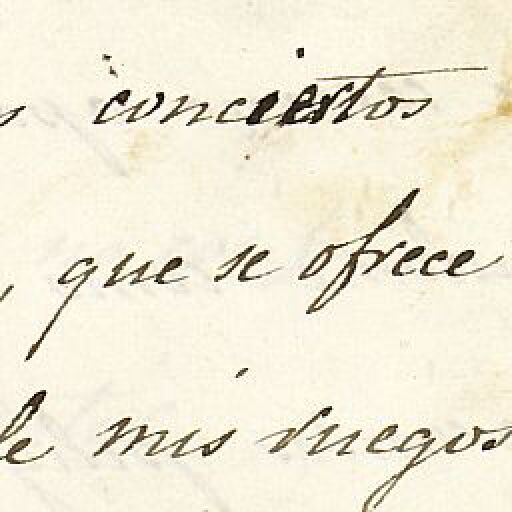 conciertos
, que se ofrece
mis ruegos